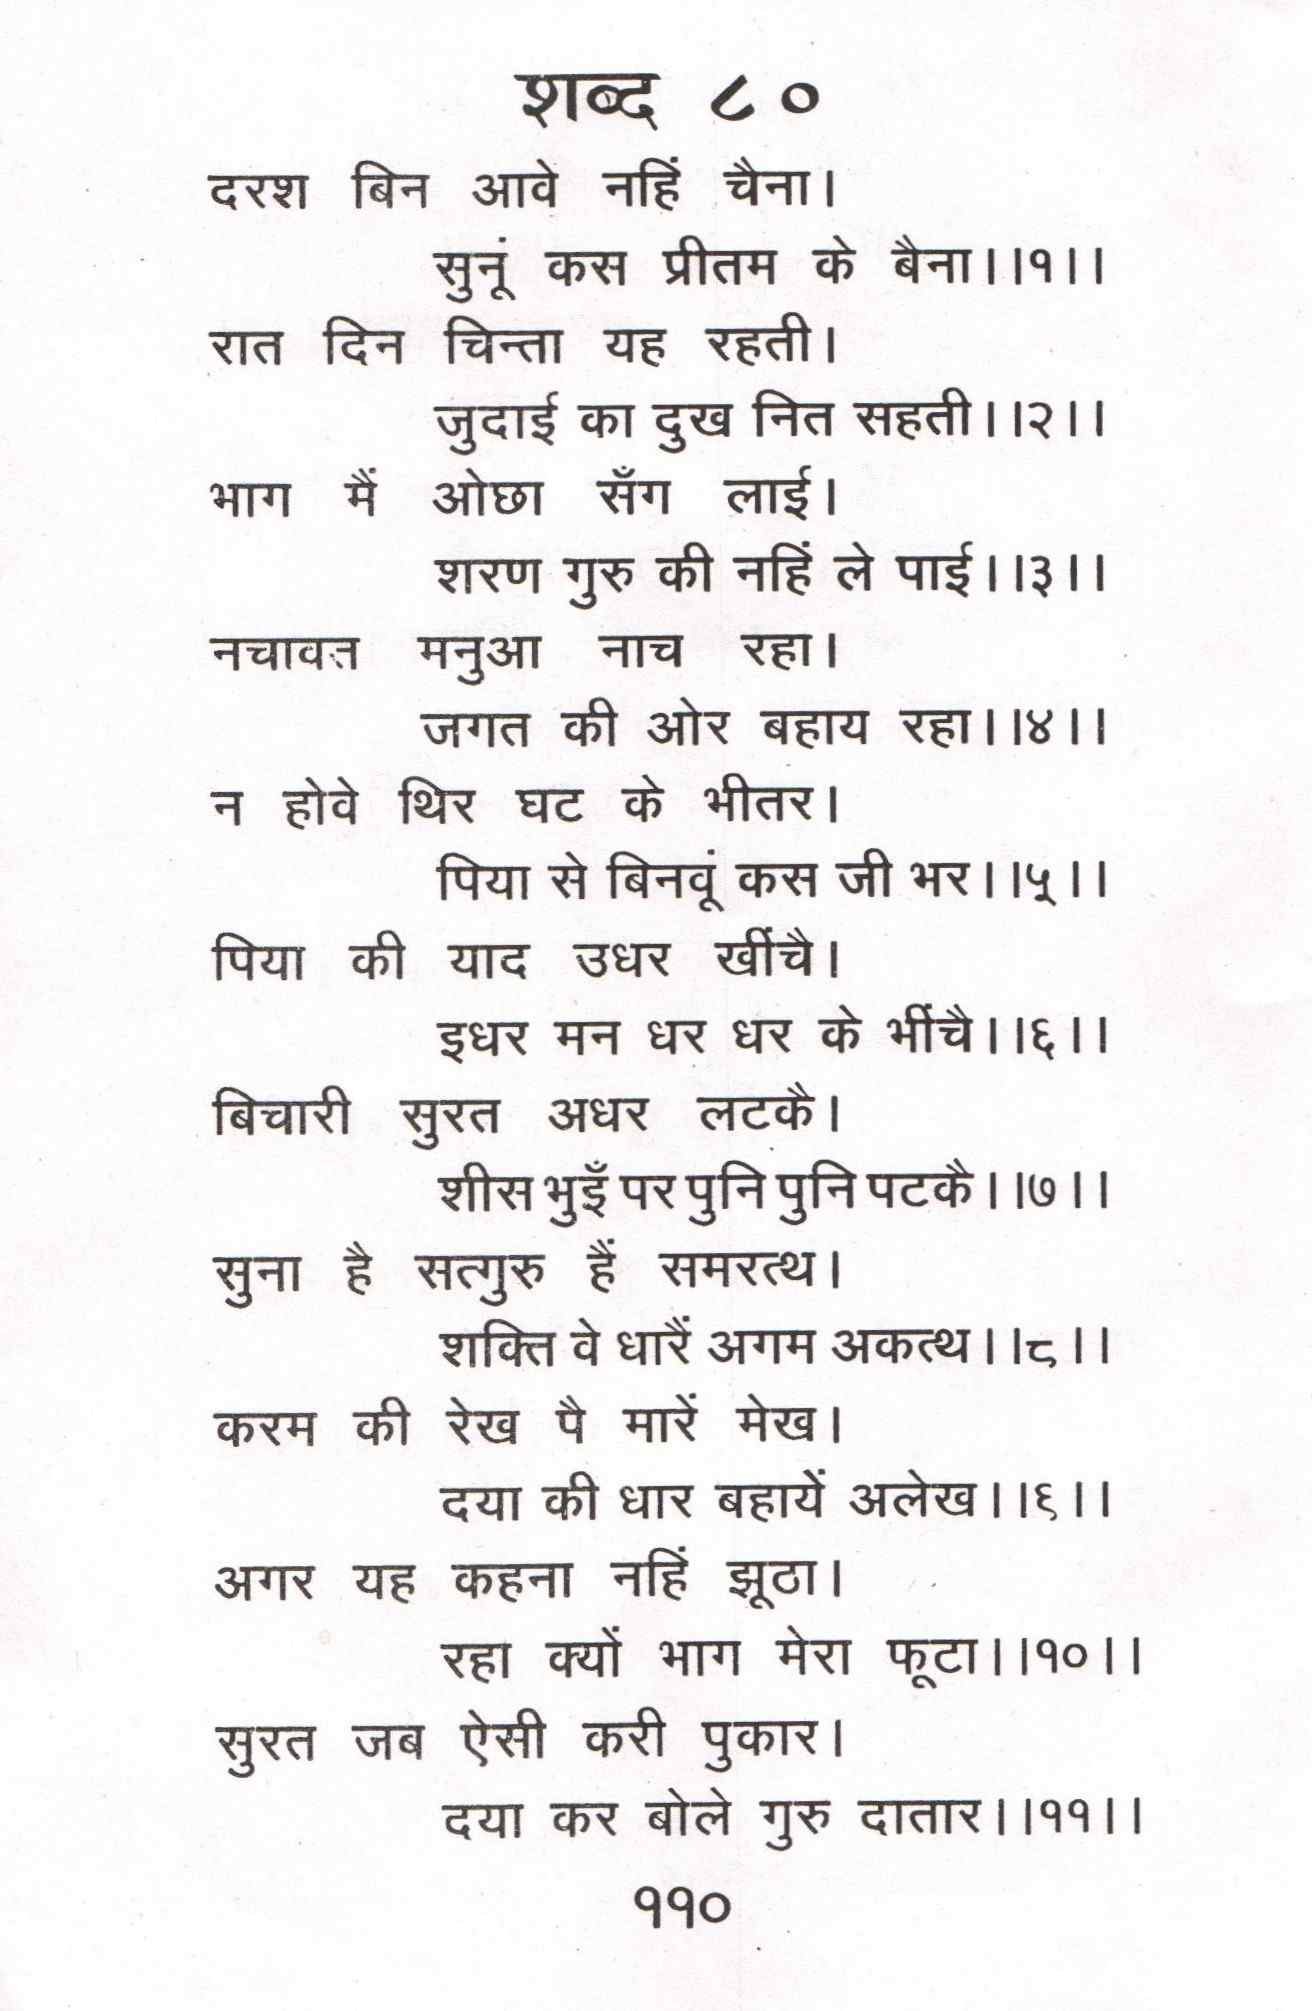 शब्द ८०
दरश बिन आवे नहिं चैना।
सुनूं कस प्रीतम के बैना।।१।।
रात दिन चिन्ता यह रहती।
जुदाई का दुख नित सहती।।२।।
भाग मैं ओछा सँग लाई।
शरण गुरु की नहिं ले पाई।।३।।
नचावत मनुआ नाच रहा।
जगत की ओर बहाय रहा।।४।।
न होवे थिर घट के भीतर।
पिया से बिनवूं कस जी भर।।५।।
पिया की याद उधर खींचै।
इधर मन धर धर के भींचै।।६।।
बिचारी सुरत अधर लटकै।
शीस भुइँ पर पुनि पुनि पटकै।।७।।
सुना है सत्गुरु हैं समरत्थ।
शक्ति वे धारैं अगम अकत्थ।।८।।
करम की रेख पै मारें मेख।
दया की धार बहायें अलेख।।९।।
अगर यह कहना नहिं झूठा।
रहा क्यों भाग मेरा फूटा।।१०।।
सुरत जब ऐसी करी पुकार।
दया कर बोले गुरु दातार।।११।।
११०